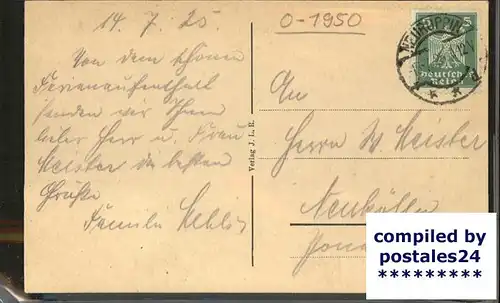 14. 7. 25.
0-1950
Von dem schönen
Ferienaufenthalt
senden wir Ihnen
lieber Herr u. Frau
Meister die besten
Grüße
Familie
Verlag J. L. R.
NEURUPPIN
5
Deutsches
Reich
An
Herrn W. Meister
Neukölln
compiled by
postales24
*********